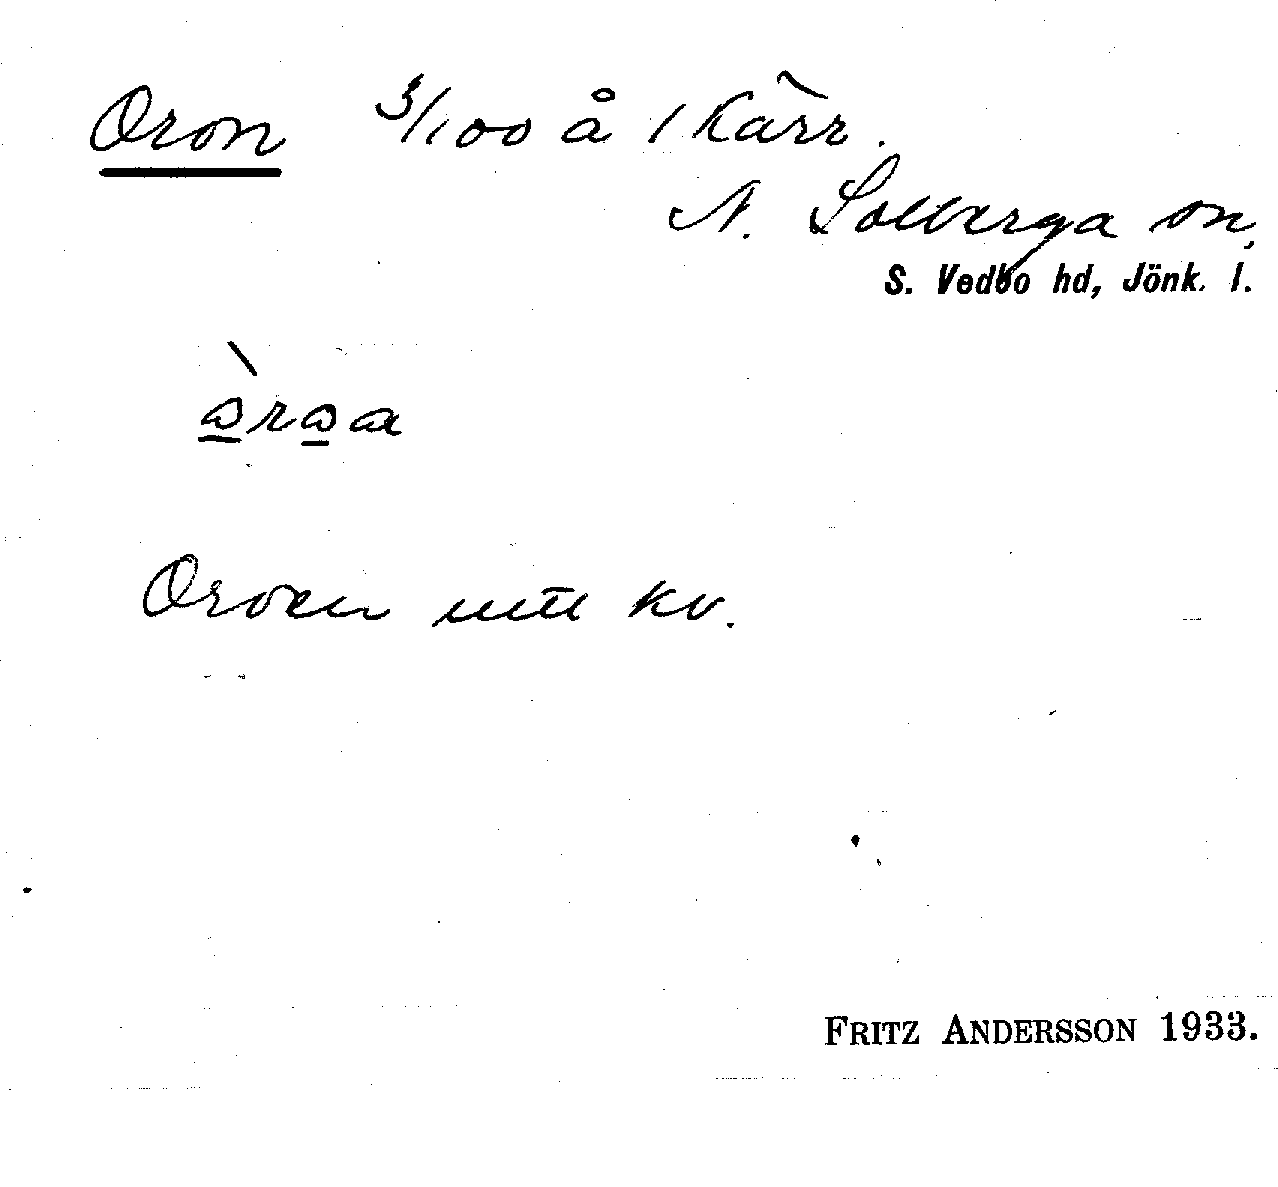 Oron 3/100 å 1 Kärr.
N. Solberga sn,
S. Vedbo hd, Jönk. l.
Oroen mtl kv.
FRITZ ANDERSSON 1933.